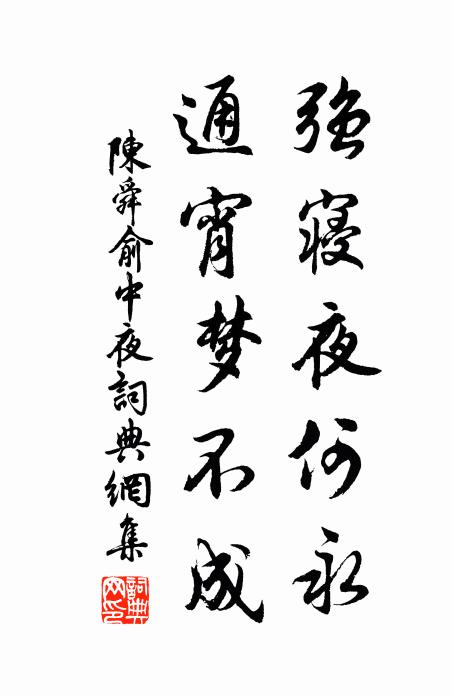 強寝夜何永
通宵梦不成
陳舜俞中夜詞典網集
詞典網印